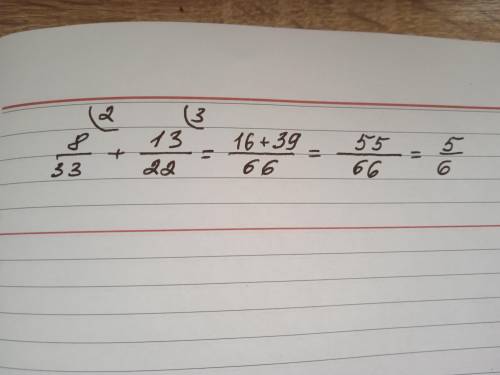 8/33 (2 + 13/22 (3 = 16+39/66 = 55/66 = 5/6